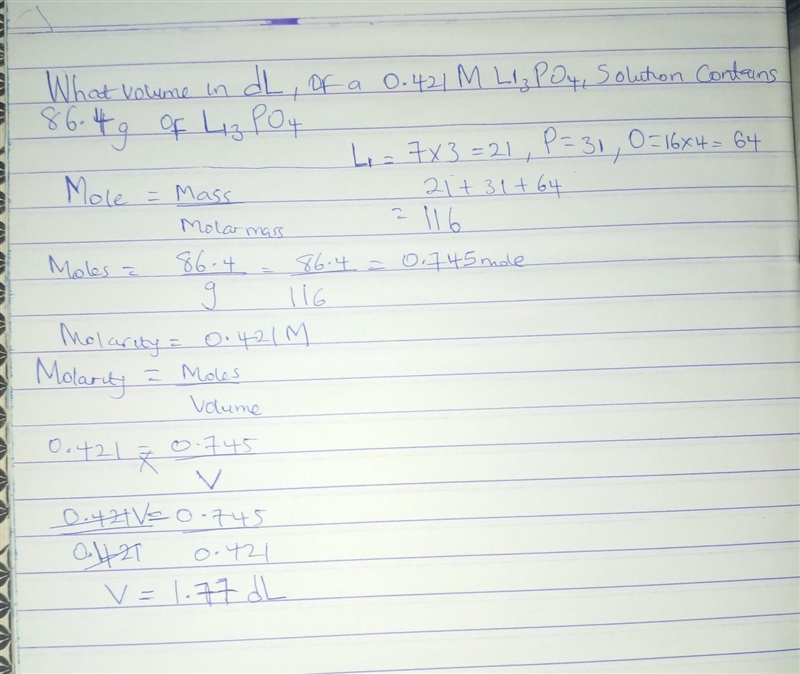 What volume in dL, of a 0.421 M Li3PO4, Solution Contains
86.4g of Li3PO4
Li = 7x3 = 21, P = 31, O = 16x4 = 64
21 + 31 + 64
= 116
Mole = Mass
Molar mass
Moles = 86.4 = 86.4 = 0.745 mole
g 116
Molarity = 0.421 M
Molarity = Moles
Volume
0.421 = 0.745
V
0.421V = 0.745
0.421 0.421
V = 1.77 dL